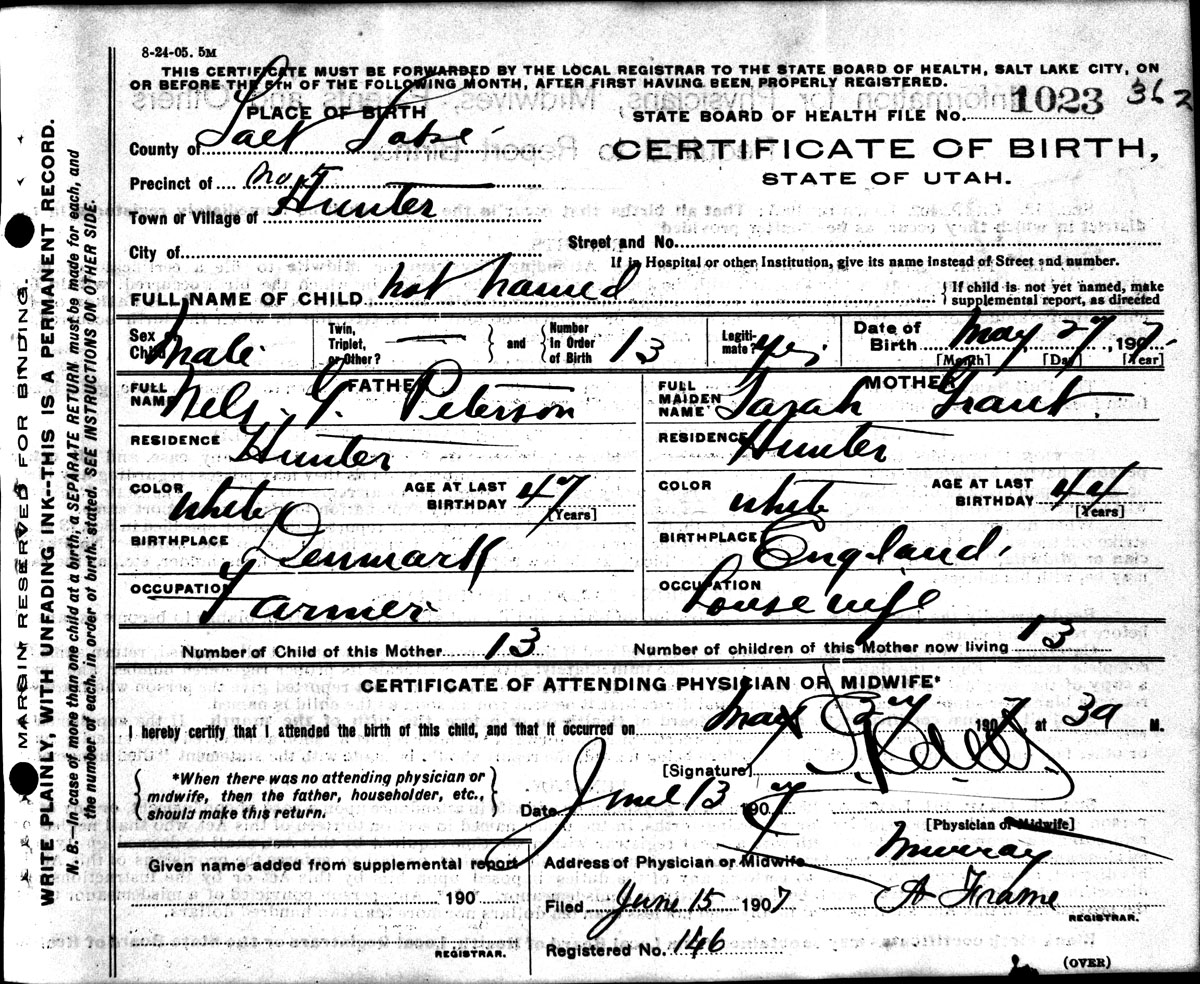 8-24-05. 5M
THIS CERTIFICATE MUST BE FORWARDED BY THE LOCAL REGISTRAR TO THE STATE BOARD OF HEALTH, SALT LAKE CITY, ON
OR BEFORE THE 5TH OF THE FOLLOWING MONTH, AFTER FIRST HAVING BEEN PROPERLY REGISTERED.
PLACE OF BIRTH
STATE BOARD OF HEALTH FILE No. 1023 362
County of Salt Lake
CERTIFICATE OF BIRTH,
STATE OF UTAH.
Precinct of No 5
Town or Village of Hunter
City of
Street and No.
If in Hospital or other Institution, give its name instead of Street and number.
FULL NAME OF CHILD not named
If child is not yet named, make
supplemental report, as directed
Sex Child Male
Twin, Triplet, or Other? — and Number In Order of Birth 13
Legitimate? Yes
Date of Birth May 27, 1907
[Month] [Day] [Year]
FATHER
FULL NAME Nels Peterson
RESIDENCE Hunter
COLOR White AGE AT LAST BIRTHDAY 47 [Years]
BIRTHPLACE Denmark
OCCUPATION Farmer
MOTHER
FULL MAIDEN NAME Sarah Grant
RESIDENCE Hunter
COLOR White AGE AT LAST BIRTHDAY 44 [Years]
BIRTHPLACE England
OCCUPATION Housewife
Number of Child of this Mother 13 Number of children of this Mother now living 13
CERTIFICATE OF ATTENDING PHYSICIAN OR MIDWIFE*
I hereby certify that I attended the birth of this child, and that it occurred on May 27 1907, at 3a M.
*When there was no attending physician or
midwife, then the father, householder, etc.,
should make this return.
[Signature]
Date June 13 1907
[Physician or Midwife]
Given name added from supplemental report
190
REGISTRAR.
Address of Physician or Midwife Murray
Filed June 15 1907 A Frame
REGISTRAR.
Registered No. 146
(OVER)
MARGIN RESERVED FOR BINDING.
WRITE PLAINLY, WITH UNFADING INK--THIS IS A PERMANENT RECORD.
N. B.—In case of more than one child at a birth, a SEPARATE RETURN must be made for each, and
the number of each, in order of birth, stated. SEE INSTRUCTIONS ON OTHER SIDE.